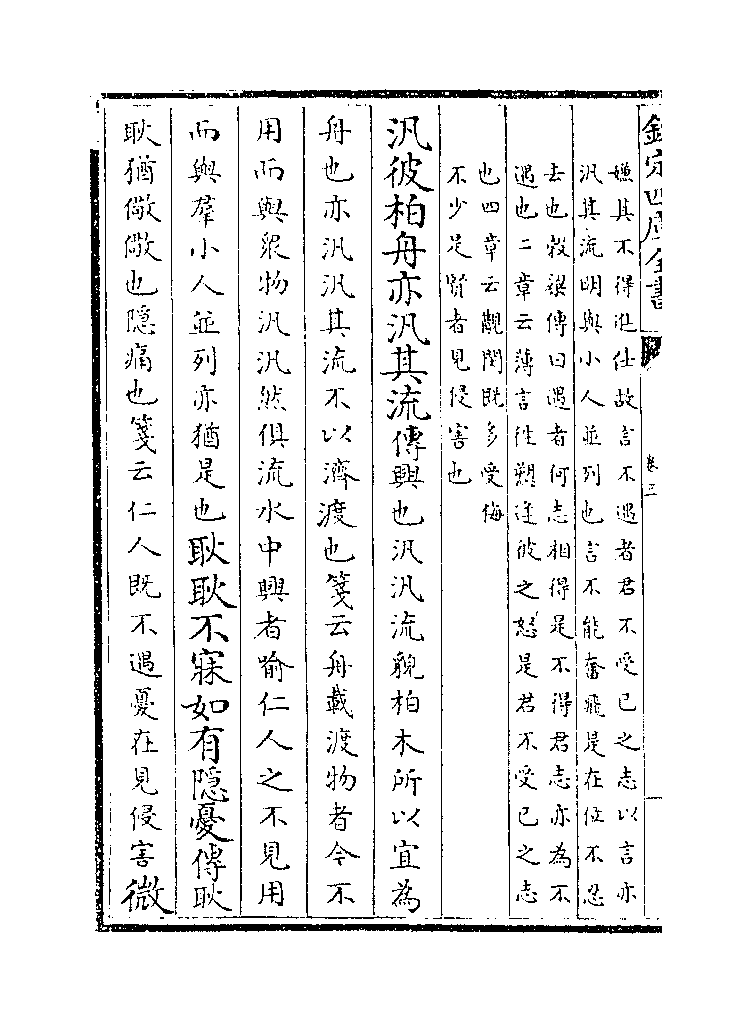 欽定四庫全書
卷三
嫌其不得進仕故言不遇者君不受已之志以言亦
汎其流明與小人並列也言不能奮飛是在位不忍
去也穀梁傳曰遇者何志相得是不得君志亦為不
遇也二章云薄言往愬逢彼之怒是君不受已之志
也四章云覯閔既多受侮
不少是賢者見侵害也
汎彼柏舟亦汎其流傳興也汎汎流貌柏木所以宜為
舟也亦汎汎其流不以濟渡也箋云舟載渡物者今不
用而與衆物汎汎然俱流水中興者喻仁人之不見用
而與羣小人並列亦猶是也耿耿不寐如有隱憂傳耿
耿猶儆儆也隱痛也箋云仁人既不遇憂在見侵害微